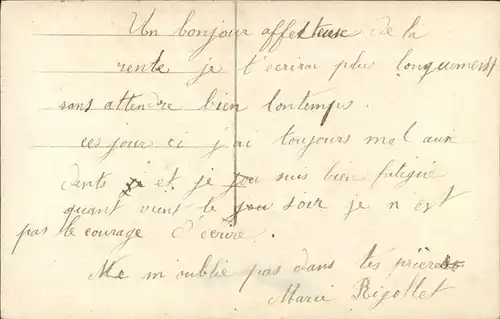 Un bonjour affecteuse de la
rente je t'ecrirai plus longuement
sans attendre bien lontemps.
ces jour ci j'ai toujours mal aux
dents et je suis bien fatigué
quant vient le soir je n est
pas le courage d'écrire.
Ne m'oublie pas dans tes prières
Marie Rigollet